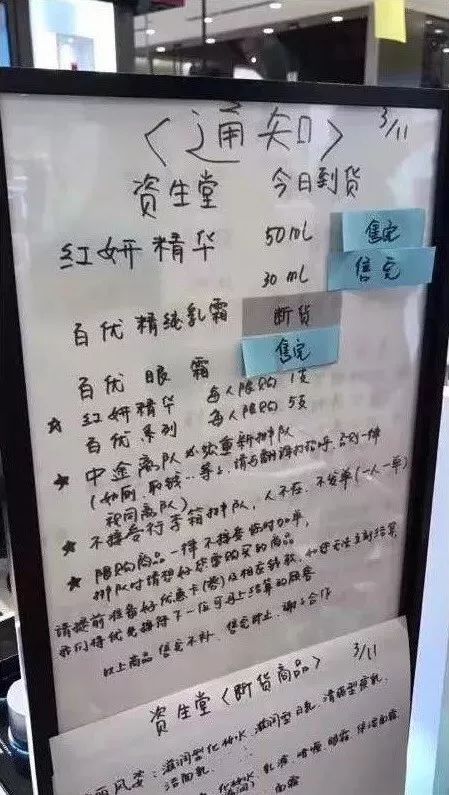 〈通知〉 3/11
资生堂 今日到货
红妍精华 50ml 售完
30ml 售完
百优精纯乳霜 断货
百优眼霜 售完
★ 红妍精华 每人限购1支
百优系列 每人限购5支
★ 中途离队必须重新排队
(如厕、取钱..等), 请与翻译打招呼, 否则一律
视同离队)
★ 不接受行李箱排队, 人不在, 不发单(一人一单)
★ 限购商品一律不接受临时加单,
排队时请想好您要购买的商品
请提前准备好优惠卡(券)及相应钱款, 如您无法立刻结算,
我们将优先接待下一位可马上结算的顾客
以上商品 售完不补, 售完即止, 谢谢合作
资生堂〈断货商品〉 3/11
滋润型化妆水 滋润型日乳 清爽型夜乳
洁面乳
化妆水 乳液 眼霜 洁面霜
面霜